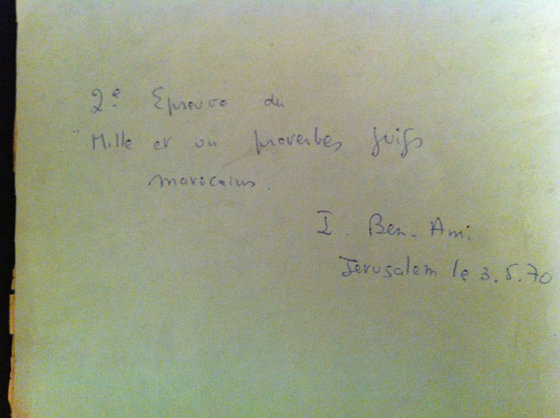 2e Epreuve du
"Mille et un proverbes juifs
marocains
I. Ben-Ami
Jerusalem le 3.5.70